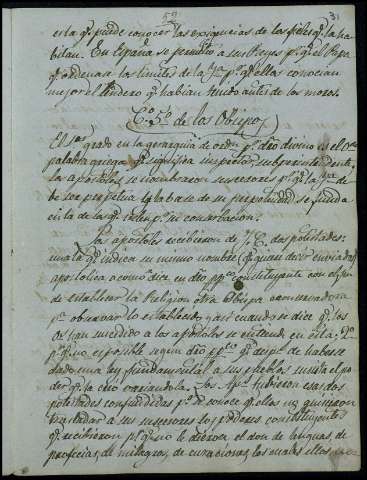 59
31
esta q.e puede conocer las exigencias de los fieles q.e la ha-
bitan. En España se permitio a sus Reyes p.r q.e el Papa
q.e ordenara los limites de la p.r q.e ellos conocian
mejor el q.e habian tenido antes de los moros.
C.o 5.o de los Obispos
El 1.er grado en la gerarquia de orden p.r dro divino es el Ob.po
palabra griega q.e significa inspector, subpresidente.
Los apostoles se nombraron sucesores p.r q.e la de-
be ser perpetua y la base de su perpetuidad se funda
en la de los q.e su conservacion.
Los apostoles recibieron de J. C. dos potestades:
una la q.e indica su mismo nombre (q.e quiere decir enviado)
apostolica o como dice en dro pp.co constituyente con el fin
de establecer la Religion otra Obispa conservadora
p.a observar lo establecido, y asi cuando se dice q.e los
Ob. han sucedido a los apostoles se entiende en esta, 2.a
p.r q.e no es posible segun dro pp.co q.e despues de haberse
dado una ley fundamental a sus pueblos exista el po-
der q.e la creo variandola. Los Ap.s tubieron esas dos
potestades confundidas p.o se conoce q.e ellos no quisieron
trasladar a sus sucesores los poderes constituyentes
q.e recibieron p.r q.e no le dieron el don de lenguas, de
profecias, de milagros, de curaciones, las cuales ellos